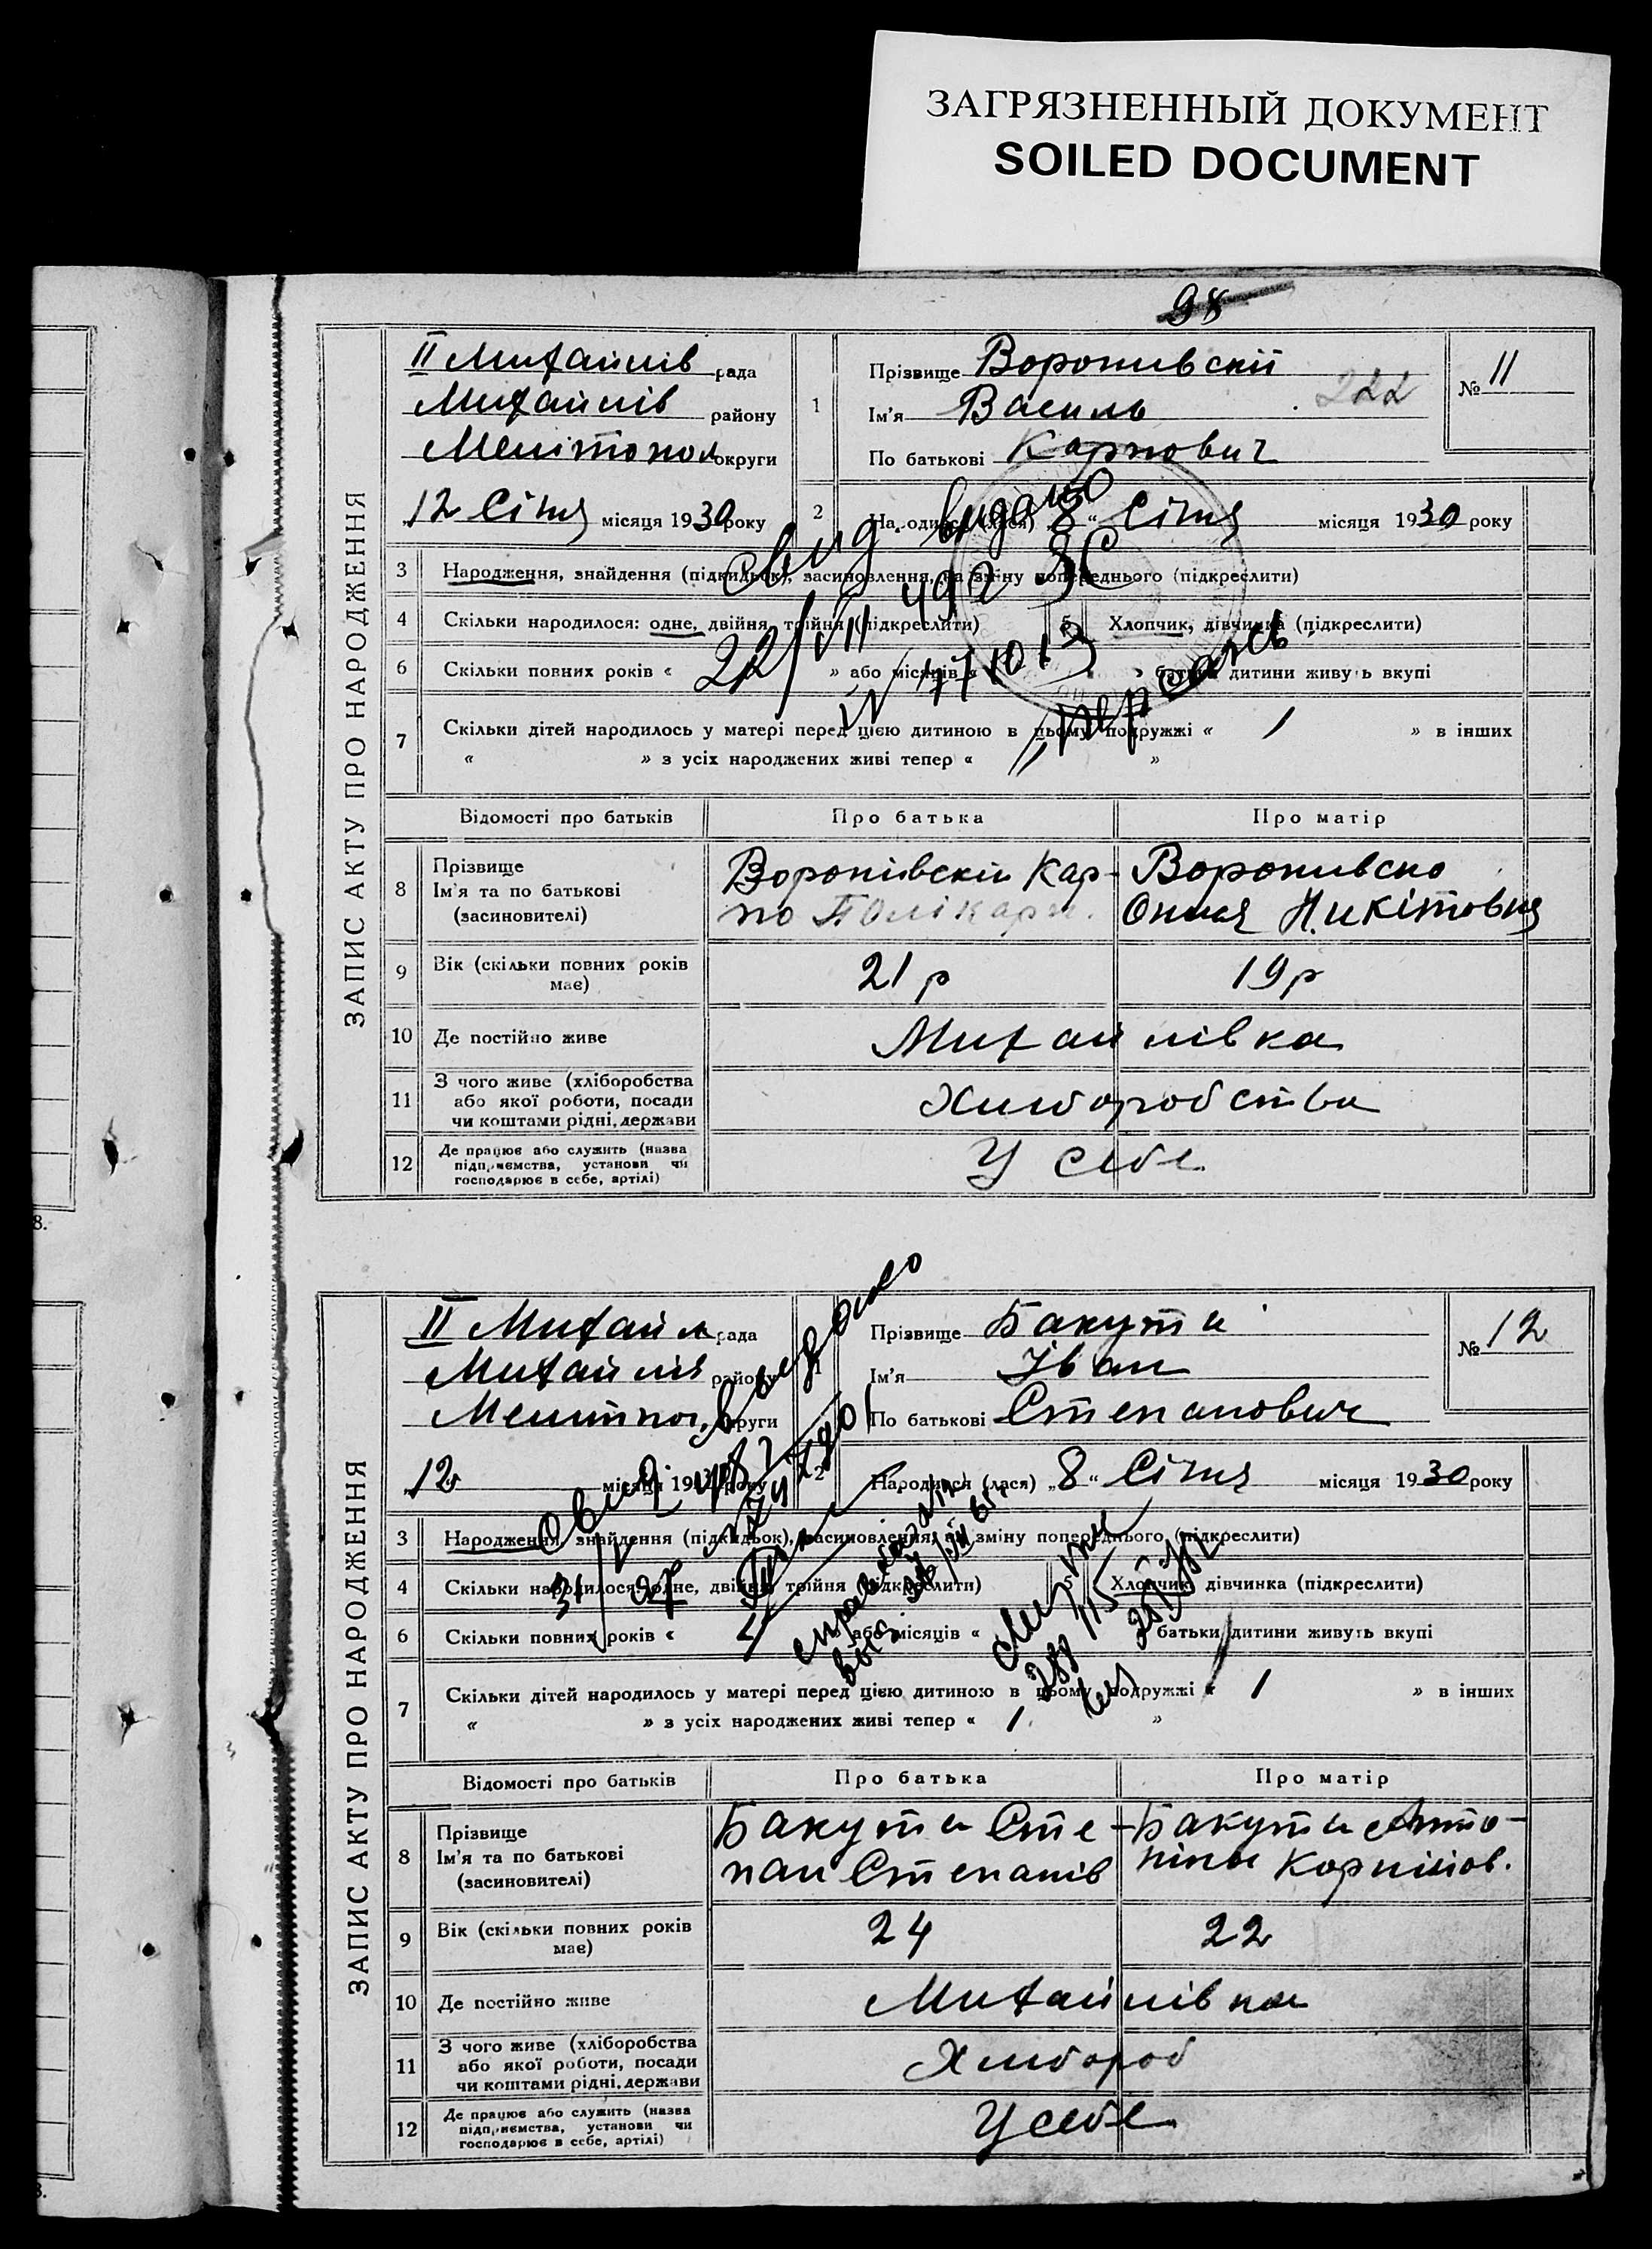 ЗАГРЯЗНЕННЫЙ ДОКУМЕНТ
SOILED DOCUMENT
98
ЗАПИС АКТУ ПРО НАРОДЖЕННЯ
II Михайлів рада
Михайлів району
Мелітопол округи
12 Січня місяця 1930 року
1 Прізвище Воропивскій
Ім'я Василь 222
По батькові Карпович
№ 11
2 Народився (лася) „8“ Січня місяця 1930 року
3 Народження, знайдення (підкидьок), засиновлення, на зміну попереднього (підкреслити)
4 Скільки народилося: одне, двійня, трійня (підкреслити) 5 Хлопчик, дівчинка (підкреслити)
6 Скільки повних років « » або місяців « » батьки дитини живуть вкупі
7 Скільки дітей народилось у матері перед цією дитиною в цьому подружжі « 1 » в інших
« » з усіх народжених живі тепер « »
видано
22/VII
Відомості про батьків Про батька Про матір
8 Прізвище
Ім'я та по батькові
(засиновителі)
Воропівскій Кар-
по Полікарп.
Воропивско
Оккія Никітовня
9 Вік (скільки повних років
має)
21 р 19 р
10 Де постійно живе Михайлівка
11 З чого живе (хліборобства
або якої роботи, посади
чи коштами рідні, держави
Хлиборобства
12 Де працює або служить (назва
підприємства, установи чи
господарює в себе, артілі)
У себе
ЗАПИС АКТУ ПРО НАРОДЖЕННЯ
II Михайл рада
Михайлів району
Мелитпол округи
12 місяця 19 року
Прізвище Бакута
Ім'я Іван
По батькові Степанович
№ 12
2 Народився (лася) „8“ Січня місяця 1930 року
3 Народження, знайдення (підкидьок), засиновлення, на зміну попереднього (підкреслити)
4 Скільки народилося: одне, двійня, трійня (підкреслити) 5 Хлопчик, дівчинка (підкреслити)
6 Скільки повних років « » або місяців « батьки дитини живуть вкупі
7 Скільки дітей народилось у матері перед цією дитиною в цьому подружжі « 1 » в інших
« » з усіх народжених живі тепер « 1 »
Відомості про батьків Про батька Про матір
8 Прізвище
Ім'я та по батькові
(засиновителі)
Бакута Сте-
пан Степанів
Бакута Анто-
ніна Корнійов.
9 Вік (скільки повних років
має)
24 22
10 Де постійно живе Михайлівка
11 З чого живе (хліборобства
або якої роботи, посади
чи коштами рідні, держави
Хлибороб
12 Де працює або служить (назва
підприємства, установи чи
господарює в себе, артілі)
У себе